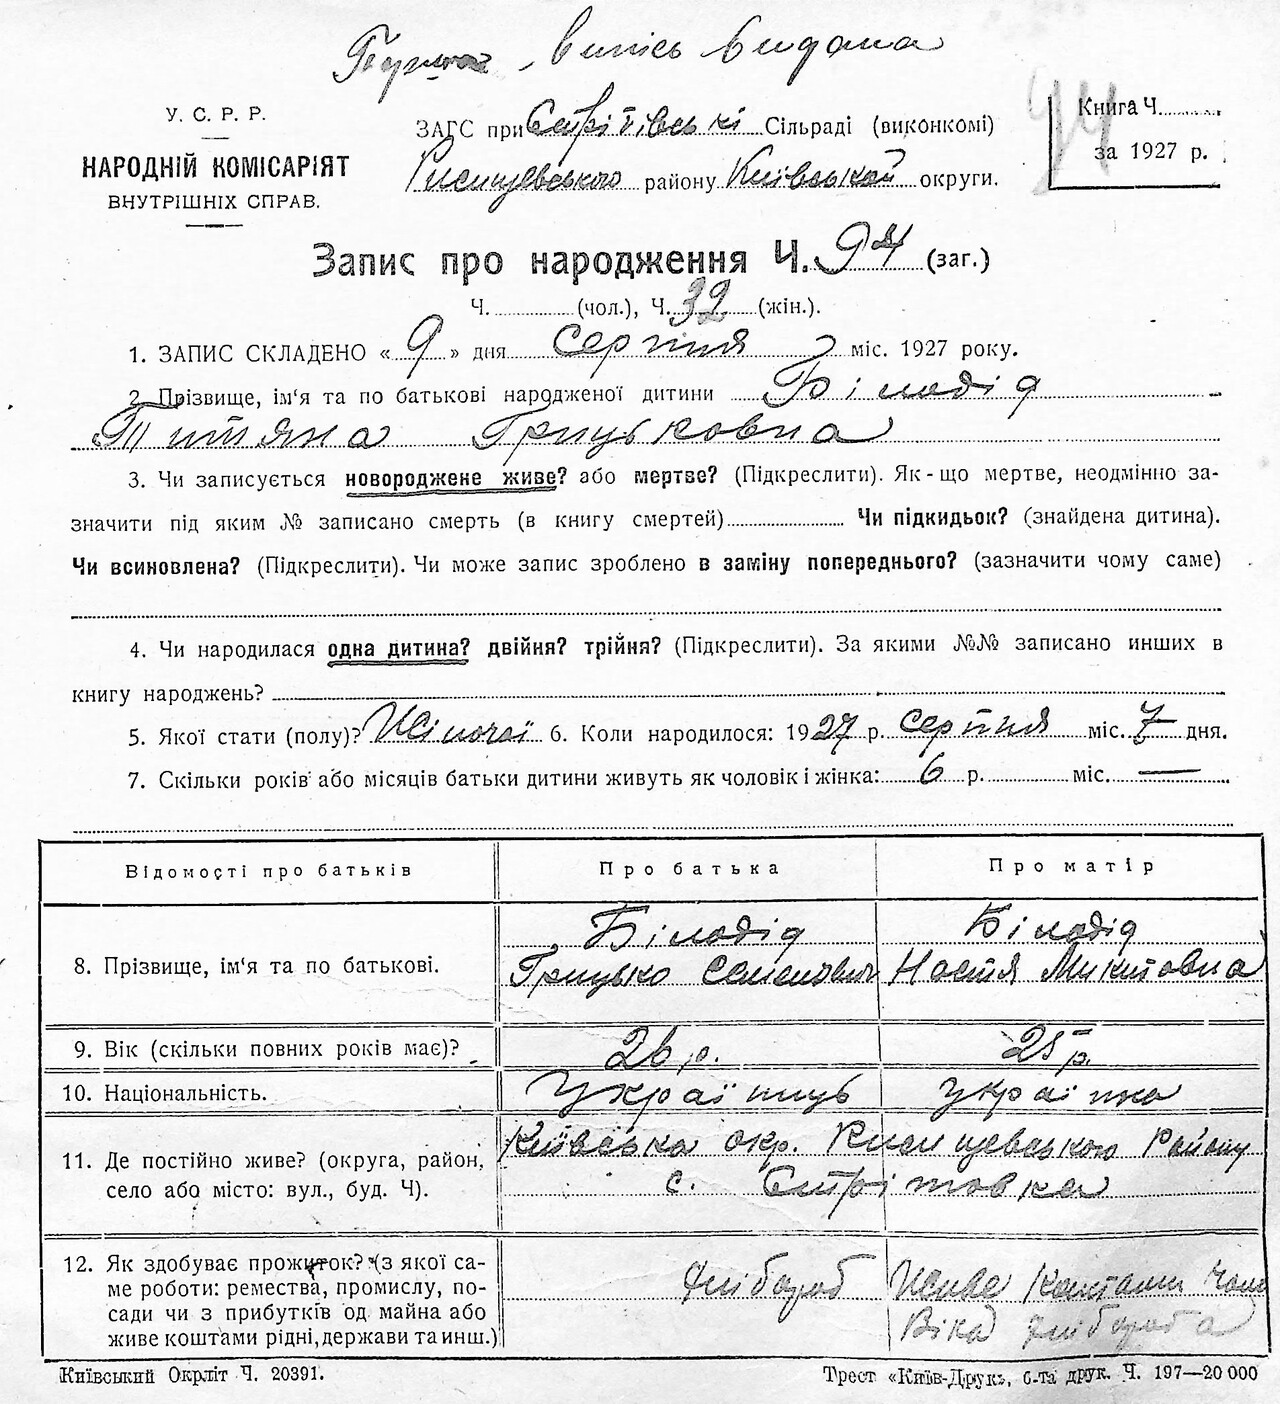 Перша виписъ видана
У. С. Р. Р.
НАРОДНІЙ КОМІСАРІЯТ
ВНУТРІШНІХ СПРАВ.
ЗАГС при Стрітівські Сільраді (виконкомі)
Ржищевського району Київськой округи.
Книга Ч.
за 1927 р.
Запис про народження Ч. 94 (заг.)
Ч. (чол.), Ч. 32 (жін.).
1. ЗАПИС СКЛАДЕНО « 9 » дня серпня міс. 1927 року.
2. Прізвище, ім'я та по батькові народженої дитини Білодід
Титяна Грицьковна
3. Чи записується новороджене живе? або мертве? (Підкреслити). Як-що мертве, неодмінно за-
значити під яким № записано смерть (в книгу смертей) Чи підкидьок? (знайдена дитина).
Чи всиновлена? (Підкреслити). Чи може запис зроблено в заміну попереднього? (зазначити чому саме)
4. Чи народилася одна дитина? двійня? трійня? (Підкреслити). За якими №№ записано инших в
книгу народжень?
5. Якої стати (полу)? Жіночої 6. Коли народилося: 1927 р. серпня міс. 7 дня.
7. Скільки років або місяців батьки дитини живуть як чоловік і жінка: 6 р. міс. —
Відомості про батьків Про батька Про матір
8. Прізвище, ім'я та по батькові.
Білодід
Грицько Семенович
Білодід
Настя Микитовна
9. Вік (скільки повних років має)? 26 р. 25 р.
10. Національність. Українць українка
11. Де постійно живе? (округа, район,
село або місто: вул., буд. Ч).
Київська окр. Ржищевського Району
с. Стрітовка
12. Як здобуває прожиток? (з якої са-
ме роботи: ремества, промислу, по-
сади чи з прибутків од майна або
живе коштами рідні, держави та инш.)
Хлібороб
Живе Коштами Чоло
Віка хлібороба
Київський Окрліт Ч. 20391.
Трест «Київ-Друк», с-та друк. Ч. 197—20 000